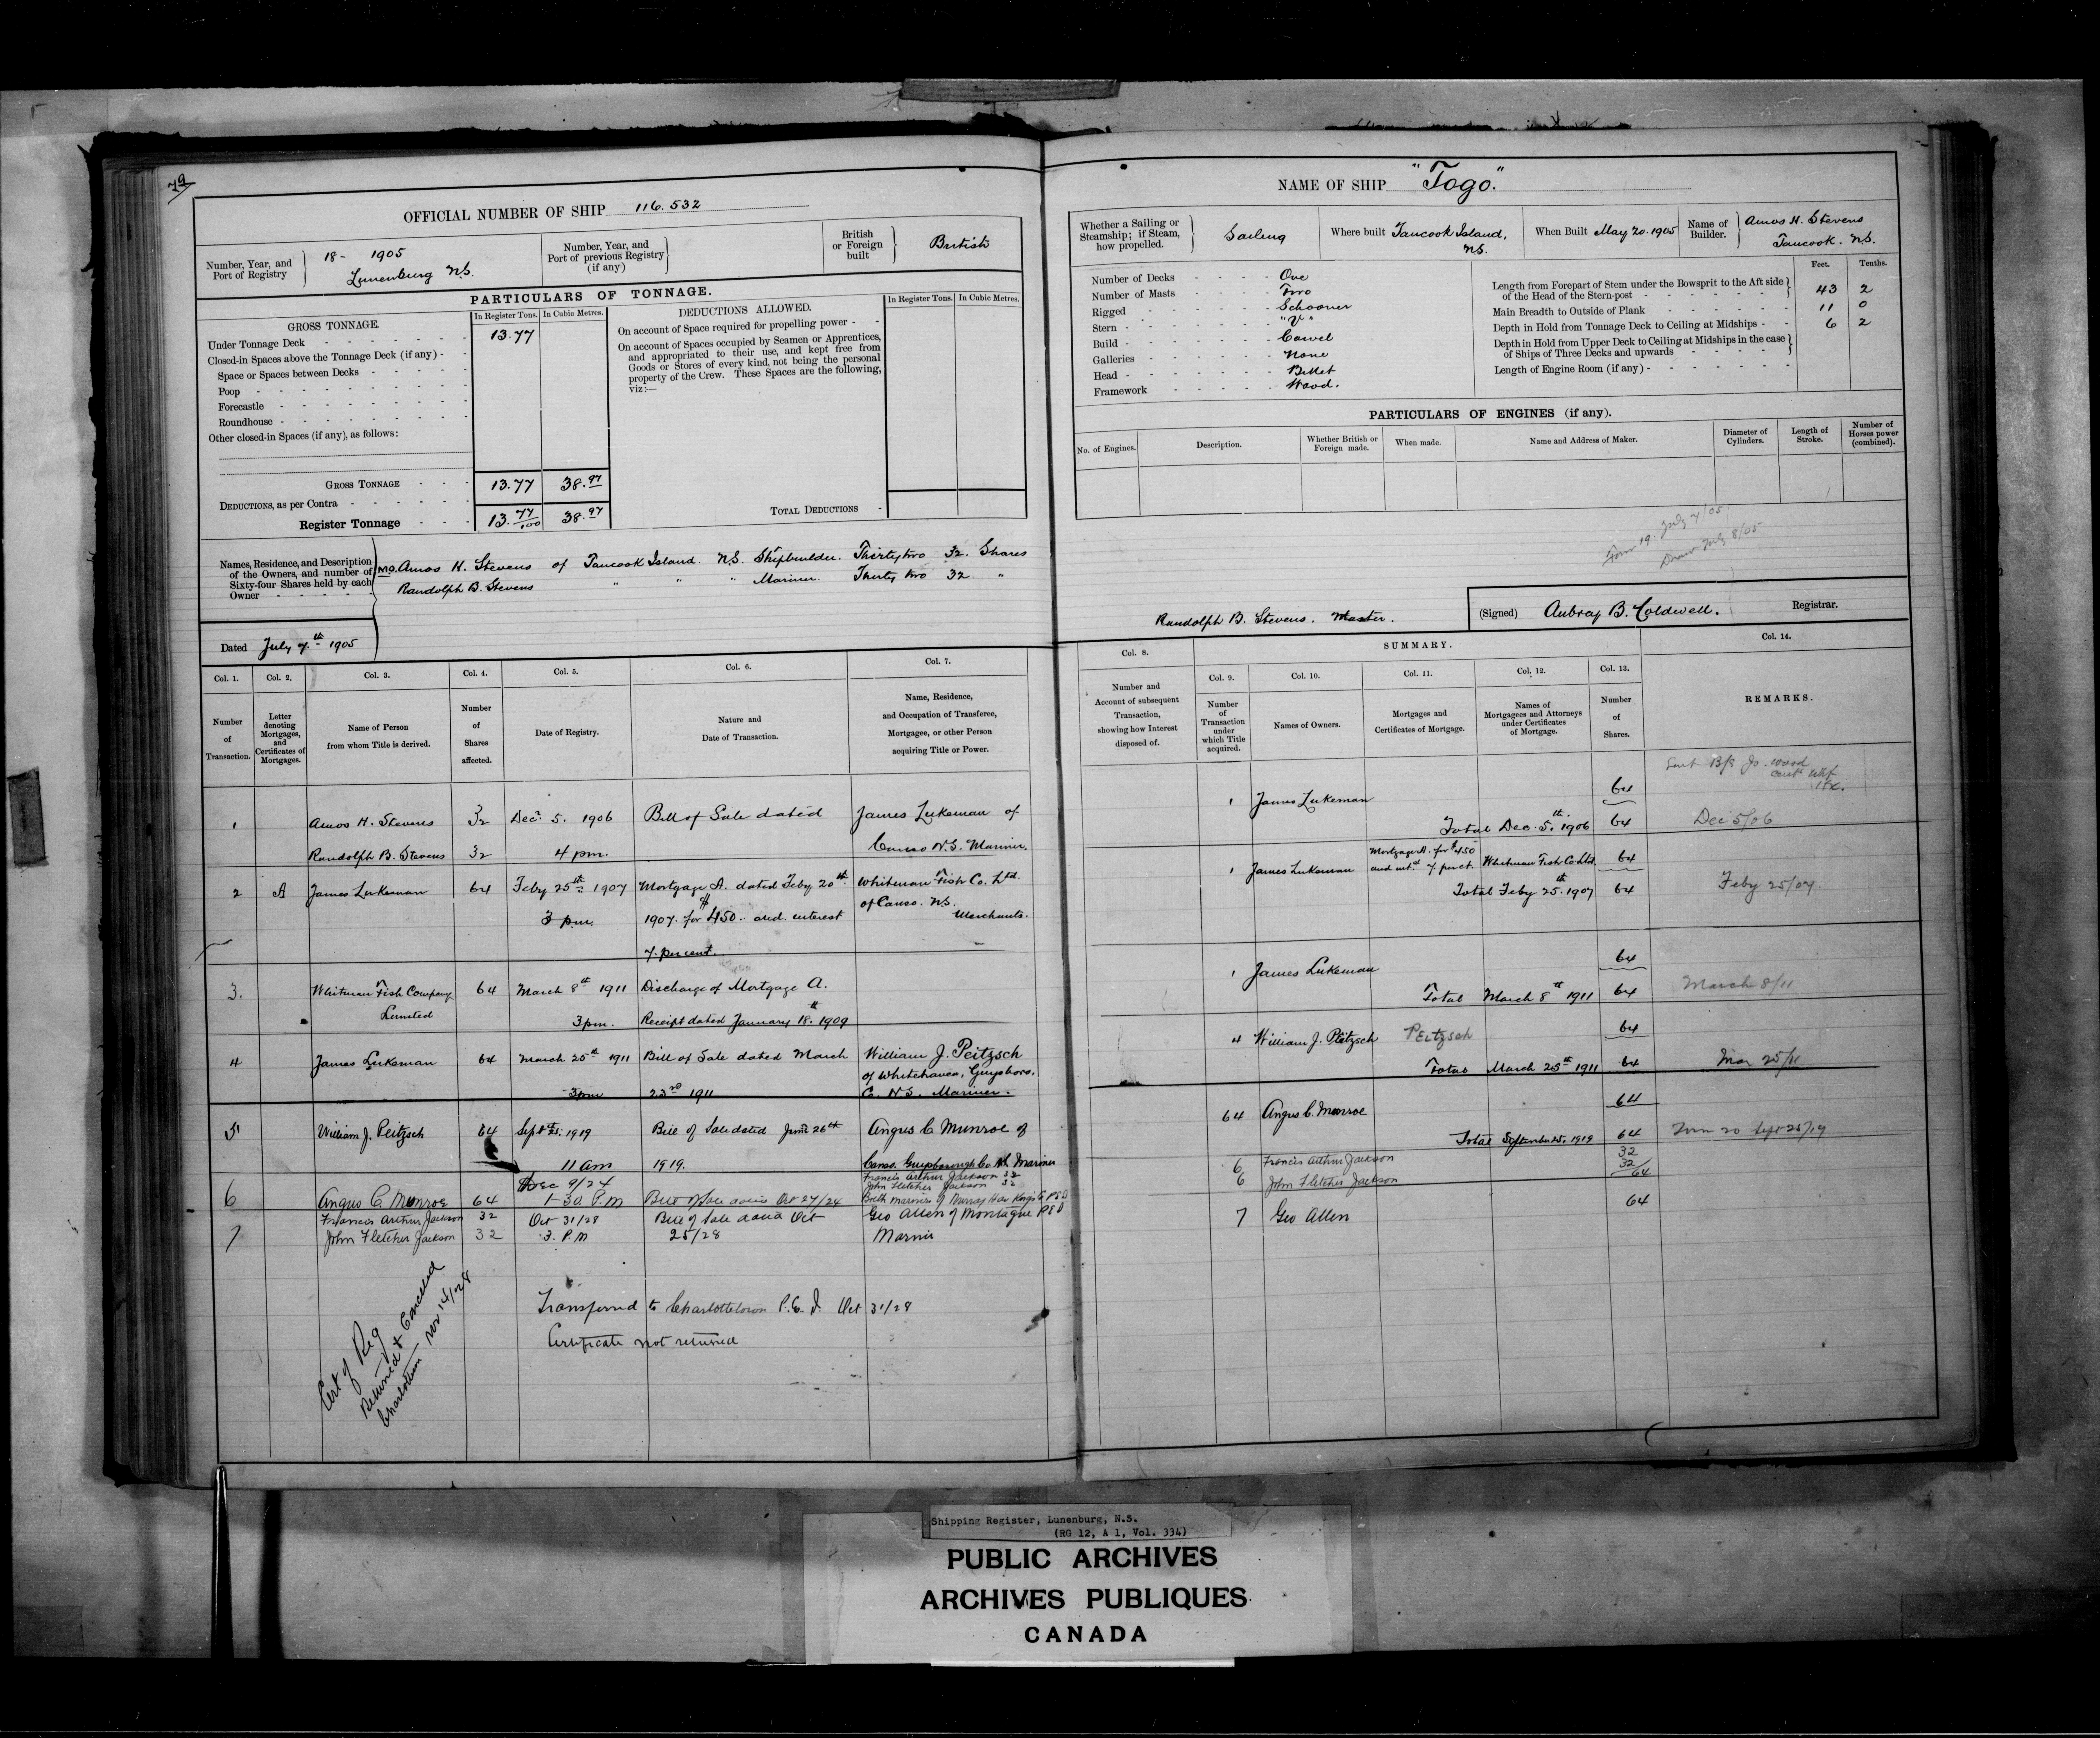 79
OFFICIAL NUMBER OF SHIP 116.532
Number, Year, and Port of Registry
18- 1905
Lunenburg N.S.
Number, Year, and Port of previous Registry (if any)
British or Foreign built
British
PARTICULARS OF TONNAGE.
GROSS TONNAGE.
In Register Tons. In Cubic Metres.
Under Tonnage Deck 13.77
Closed-in Spaces above the Tonnage Deck (if any) -
Space or Spaces between Decks
Poop
Forecastle
Roundhouse
Other closed-in Spaces (if any), as follows:
GROSS TONNAGE 13.77 38.97
DEDUCTIONS, as per Contra
Register Tonnage 13.77/100 38.97
DEDUCTIONS ALLOWED.
In Register Tons. In Cubic Metres.
On account of Space required for propelling power -
On account of Spaces occupied by Seamen or Apprentices,
and appropriated to their use, and kept free from
Goods or Stores of every kind, not being the personal
property of the Crew. These Spaces are the following,
viz:—
TOTAL DEDUCTIONS
Names, Residence, and Description
of the Owners, and number of
Sixty-four Shares held by each
Owner
M.O. Amos H. Stevens of Tancook Island N.S. Shipbuilder. Thirty two 32. Shares
Randolph B. Stevens " " " Mariner. Thirty two 32 "
Dated July 7th 1905
NAME OF SHIP "Togo."
Whether a Sailing or Steamship; if Steam, how propelled.
Sailing
Where built Tancook Island, N.S.
When Built May 20. 1905
Name of Builder.
Amos H. Stevens
Tancook. N.S.
Number of Decks One
Number of Masts Two
Rigged Schooner
Stern "V"
Build Carvel
Galleries None
Head Billet
Framework Wood.
Feet. Tenths.
Length from Forepart of Stem under the Bowsprit to the Aft side
of the Head of the Stern-post 43 2
Main Breadth to Outside of Plank 11 0
Depth in Hold from Tonnage Deck to Ceiling at Midships - - 6 2
Depth in Hold from Upper Deck to Ceiling at Midships in the case
of Ships of Three Decks and upwards
Length of Engine Room (if any) -
PARTICULARS OF ENGINES (if any).
No. of Engines.
Description.
Whether British or Foreign made.
When made.
Name and Address of Maker.
Diameter of Cylinders.
Length of Stroke.
Number of Horses power (combined).
Form 19. July 7/05
July 8/05
Randolph B. Stevens. Master.
(Signed) Aubray B. Coldwell. Registrar.
Col. 1.
Number of Transaction.
Col. 2.
Letter denoting Mortgages, and Certificates of Mortgages.
Col. 3.
Name of Person from whom Title is derived.
Col. 4.
Number of Shares affected.
Col. 5.
Date of Registry.
Col. 6.
Nature and Date of Transaction.
Col. 7.
Name, Residence, and Occupation of Transferee, Mortgagee, or other Person acquiring Title or Power.
1 Amos H. Stevens 32 Decr. 5. 1906 Bill of Sale dated James Lukeman of
Randolph B. Stevens 32 4 pm. Canso N.S. Mariner.
2 A James Lukeman 64 Feby 25th 1907 Mortgage A. dated Feby 20th Whitman Fish Co. Ltd.
3 pm. 1907. for $450.. and interest of Canso. N.S. Merchants.
7. per cent.
3. Whitman Fish Company 64 March 8th 1911 Discharge of Mortgage A.
Limited 3pm. Receipt dated January 18th 1909
4 James Lukeman 64 March 25th 1911 Bill of Sale dated March William J. Peitzsch
of Whitehaven, Guysboro,
3pm 23rd 1911 Co. N.S. Mariner.
5 William J. Peitzsch 64 Sept 25. 1919 Bill of Sale dated June 26th Angus C Munroe of
11 am 1919. Canso. Guysborough Co N.S. Mariner
Dec 9/24 Francis Arthur Jackson 32
John Fletcher Jackson 32
6 Angus C. Munroe 64 1-30 P.M Bill of Sale dated Oct 27/24 Both mariners of Murray Har Kings Co P E I
7 Francis Arthur Jackson 32 Oct 31/28 Bill of Sale dated Oct Geo Allen of Montague P E I
John Fletcher Jackson 32 3. P.M 25/28 Marnir
Transferred to Charlottetown P.E.I. Oct 31/28
Certificate not returned
Cert of Reg
Returned & Cancelled
Charlottetown Nov 14/28
Col. 8.
Number and Account of subsequent Transaction, showing how Interest disposed of.
SUMMARY.
Col. 9.
Number of Transaction under which Title acquired.
Col. 10.
Names of Owners.
Col. 11.
Mortgages and Certificates of Mortgage.
Col. 12.
Names of Mortgagees and Attorneys under Certificates of Mortgage.
Col. 13.
Number of Shares.
Col. 14.
REMARKS.
1 James Lukeman 64
Total Dec. 5th. 1906 64 Dec 5/06
1 James Lukeman Mortgage A. for $450 and int. at 7. per ct. Whitman Fish Co Ltd. 64
Total Feby 25th. 1907 64 Feby 25/07.
1 James Lukeman 64
Total March 8th 1911 64 March 8/11
4 William J. Peitzsch PEITZSCH 64
Total March 25th 1911 64 Mar 25/11
64 Angus C. Munroe 64
Total September 25, 1919 64 Form 20 Sept 25/19
6 Francis Arthur Jackson 32
6 John Fletcher Jackson 32
64
7 Geo Allen 64
Shipping Register, Lunenburg, N.S.
(RG 12, A 1, Vol. 334)
PUBLIC ARCHIVES
ARCHIVES PUBLIQUES
CANADA